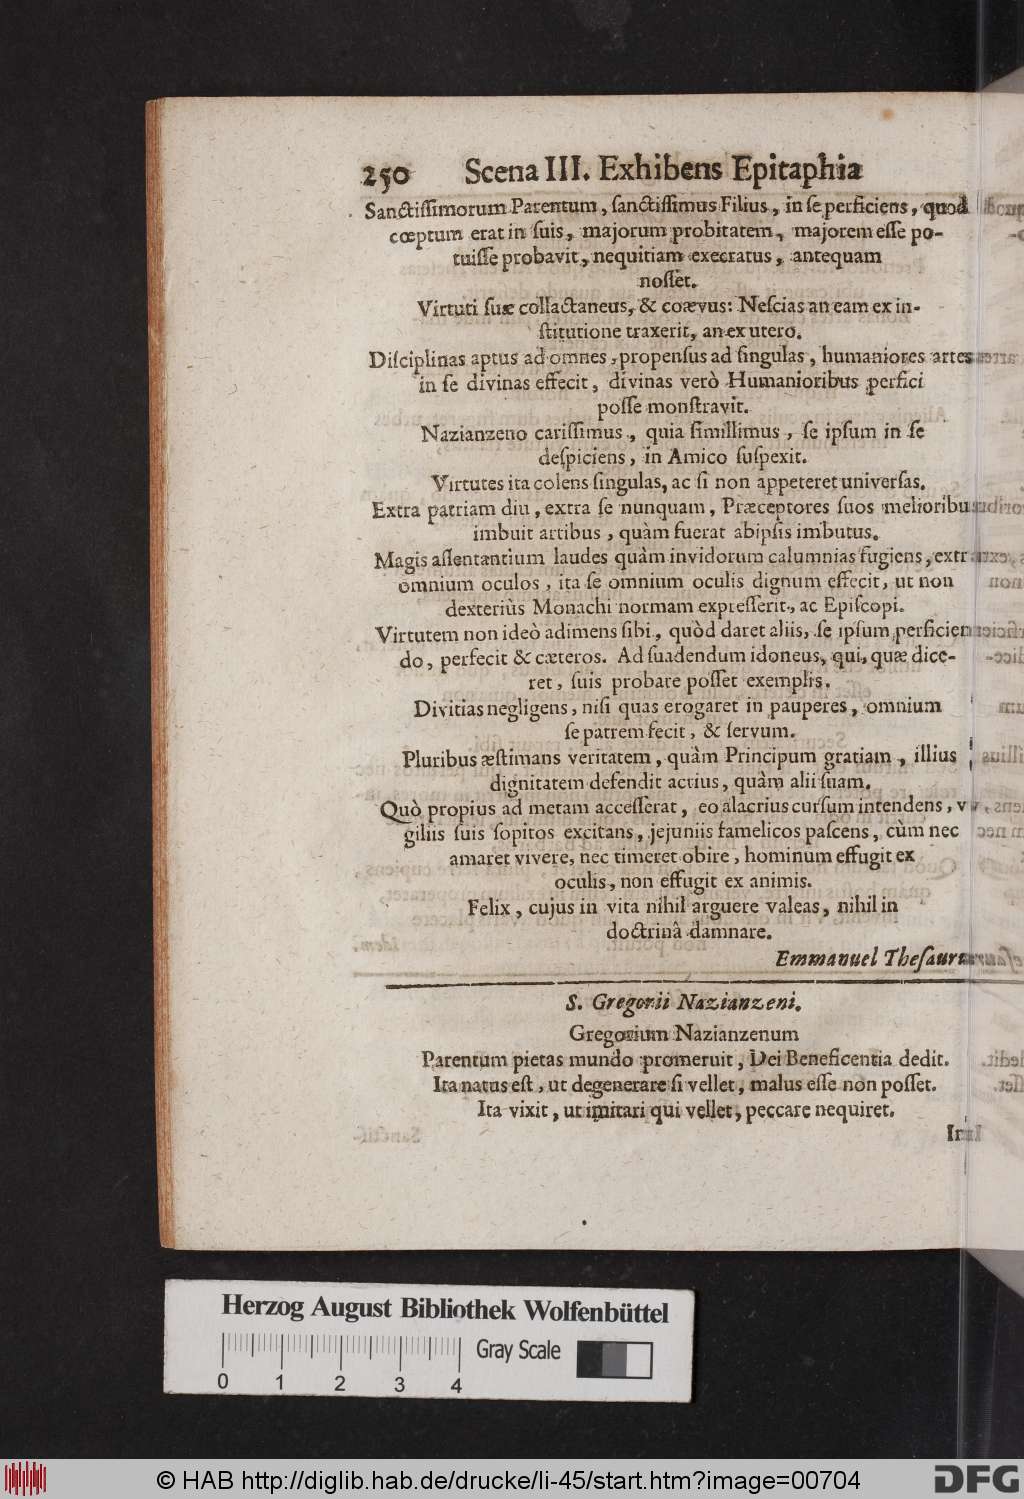 250 Scena III. Exhibens Epitaphia
Sanctiſſimorum Parentum, ſanctiſſimus Filius, in ſe perficiens, quod
cœptum erat in ſuis, majorum probitatem, majorem eſſe po-
tuiſſe probavit, nequitiam execratus, antequam
noſſet.
Virtuti ſuæ collactaneus, & coævus: Neſcias an eam ex in-
ſtitutione traxerit, an ex utero.
Diſciplinas aptus ad omnes, propenſus ad ſingulas, humaniores artes
in ſe divinas effecit, divinas verò Humanioribus perfici
poſſe monſtravit.
Nazianzeno cariſſimus, quia ſimillimus, ſe ipſum in ſe
deſpiciens, in Amico ſuſpexit.
Virtutes ita colens ſingulas, ac ſi non appeteret univerſas.
Extra patriam diu, extra ſe nunquam, Præceptores ſuos melioribu
imbuit artibus, quàm fuerat ab ipſis imbutus.
Magis aſſentantium laudes quàm invidorum calumnias fugiens, extr
omnium oculos, ita ſe omnium oculis dignum effecit, ut non
dexteriùs Monachi normam expreſſerit, ac Epiſcopi.
Virtutem non ideò adimens ſibi, quòd daret aliis, ſe ipſum perficien
do, perfecit & cæteros. Ad ſuadendum idoneus, qui, quæ dice-
ret, ſuis probare poſſet exemplis.
Divitias negligens, niſi quas erogaret in pauperes, omnium
ſe patrem fecit, & ſervum.
Pluribus æſtimans veritatem, quàm Principum gratiam, illius
dignitatem defendit actius, quàm alii ſuam.
Quò propius ad metam acceſſerat, eo alacrius curſum intendens, v
giliis ſuis ſopitos excitans, jejuniis famelicos paſcens, cùm nec
amaret vivere, nec timeret obire, hominum effugit ex
oculis, non effugit ex animis.
Felix, cujus in vita nihil arguere valeas, nihil in
doctrinâ damnare.
Emmanuel Theſaur
S. Gregorii Nazianzeni.
Gregorium Nazianzenum
Parentum pietas mundo promeruit, Dei Beneficentia dedit.
Ita natus eſt, ut degenerare ſi vellet, malus eſſe non poſſet.
Ita vixit, ut imitari qui vellet, peccare nequiret.
Herzog August Bibliothek Wolfenbüttel
Gray Scale
0 1 2 3 4
© HAB http://diglib.hab.de/drucke/li-45/start.htm?image=00704
DFG